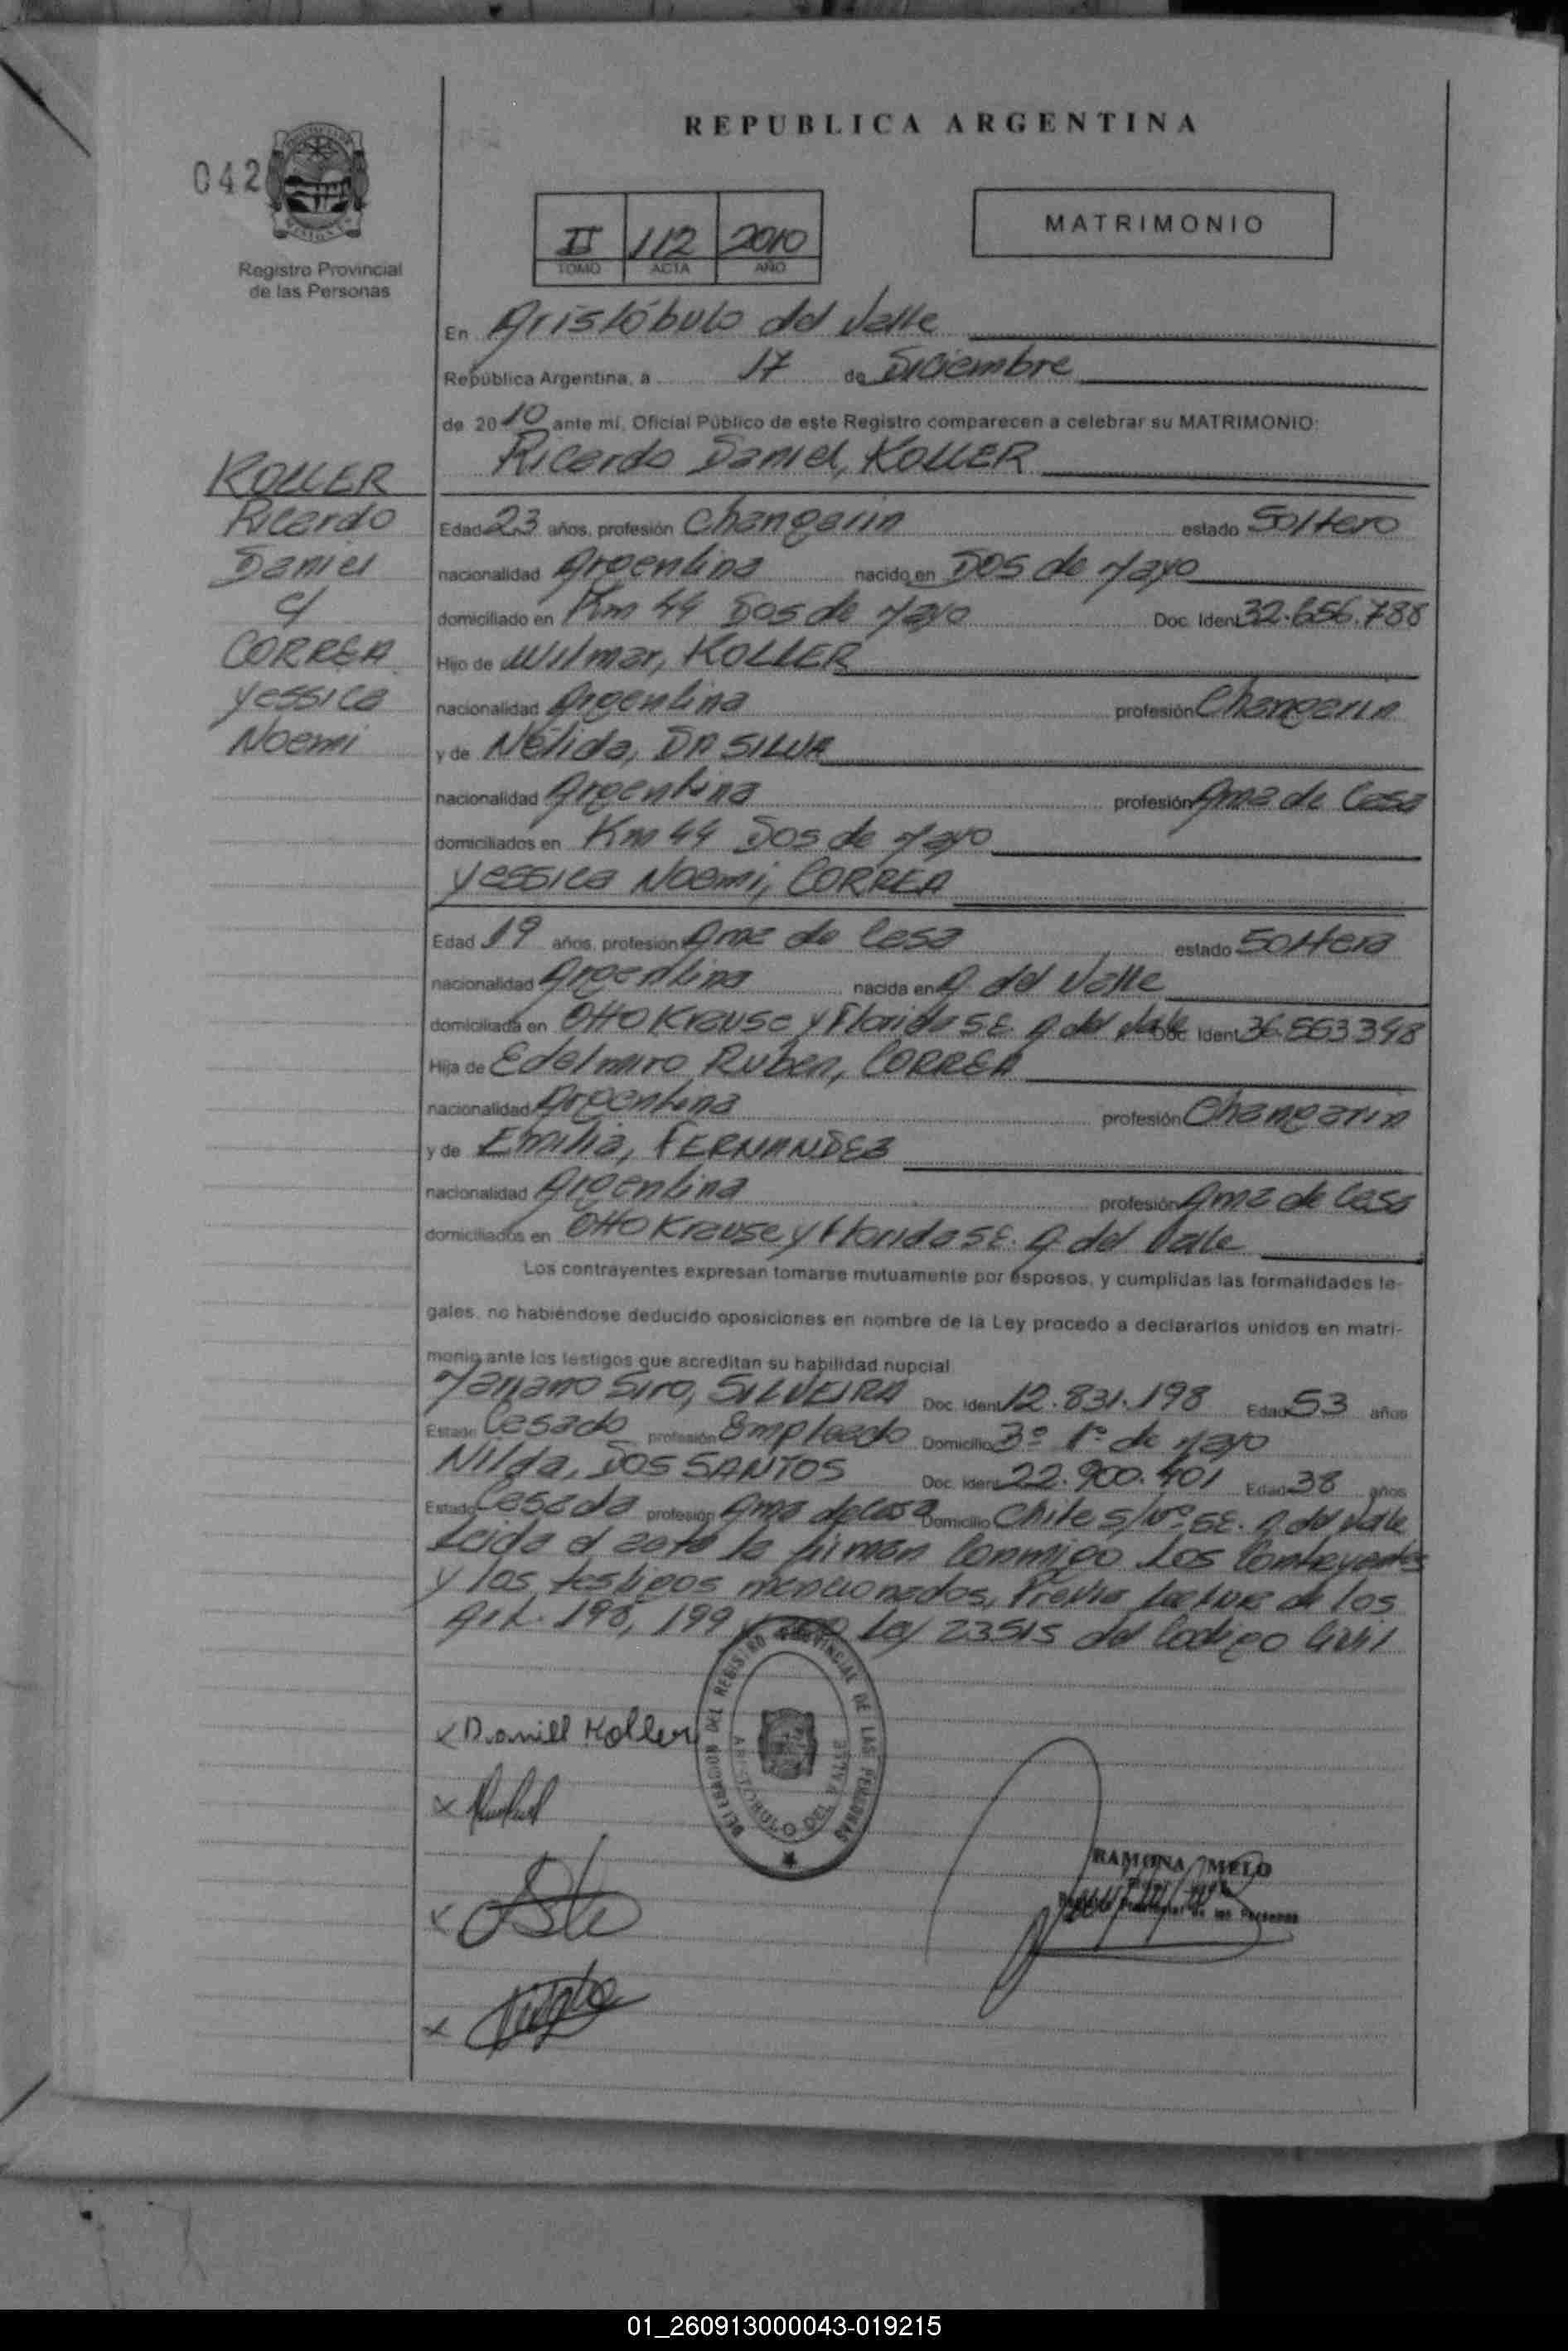 REPUBLICA ARGENTINA
042
Registro Provincial
de las Personas
II 112 2010
TOMO ACTA AÑO
MATRIMONIO
En Aristóbulo del Valle
República Argentina, a 17 de Diciembre
de 2010 ante mí, Oficial Público de este Registro comparecen a celebrar su MATRIMONIO:
Ricardo Daniel, KOLLER
KOLLER
Ricardo
Daniel
c/
CORREA
Yessica
Noemi
Edad 23 años, profesión Changarin estado Soltero
nacionalidad Argentina nacido en Dos de Mayo
domiciliado en Km 44 Dos de Mayo Doc. Ident. 32.656.788
Hijo de Wilmar, KOLLER
nacionalidad Argentina profesión Changarin
y de Nélida, DA SILVA
nacionalidad Argentina profesión Ama de Casa
domiciliados en Km 44 Dos de Mayo
Yessica Noemi, CORREA
Edad 19 años, profesión Ama de Casa estado Soltera
nacionalidad Argentina nacida en A. del Valle
domiciliada en Otto Krause y Florida SE. A del Valle Doc. Ident. 36.563.398
Hija de Edelmiro Ruben, CORREA
nacionalidad Argentina profesión Changarin
y de Emilia, FERNANDEZ
nacionalidad Argentina profesión Ama de Casa
domiciliados en Otto Krause y Florida SE. A del Valle
Los contrayentes expresan tomarse mutuamente por esposos, y cumplidas las formalidades le-
gales, no habiéndose deducido oposiciones en nombre de la Ley procedo a declararlos unidos en matri-
monio ante los testigos que acreditan su habilidad nupcial
Mariano Siro, SILVEIRA Doc. Ident. 12.831.198 Edad 53 años
Estado Casado profesión Empleado Domicilio 3º 1º de Mayo
Nilda, DOS SANTOS Doc. Ident. 22.900.401 Edad 38 años
Estado Casada profesión Ama de Casa Domicilio Chile s/Nº SE. A del Valle
Leida el acta la firman Conmigo los Contrayentes
y los testigos mencionados, Previa lectura de los
Art. 198, 199 y Ley 23515 del Codigo Civil
DELEGACION DEL REGISTRO PROVINCIAL DE LAS PERSONAS
ARISTOBULO DEL VALLE
x Daniell Koller
x
x
x
RAMONA MELO
de las Personas
01_260913000043-019215